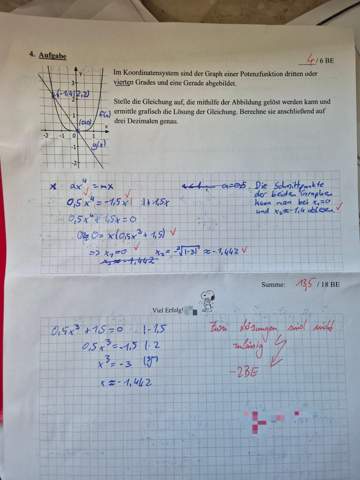 4. Aufgabe
4 / 6 BE
Im Koordinatensystem sind der Graph einer Potenzfunktion dritten oder
vierten Grades und eine Gerade abgebildet.
Stelle die Gleichung auf, die mithilfe der Abbildung gelöst werden kann und
ermittle grafisch die Lösung der Gleichung. Berechne sie anschließend auf
drei Dezimalen genau.
(-1,4|2,2)
f(x)
(0|0)
g(x)
ax⁴ = mx
a=0,5
Die Schnittpunkte
der beiden Graphen
0,5x⁴ = -1,5x | +1,5x
kann man bei x₁=0
0,5x⁴ + 1,5x = 0
und x₂≈-1,4 ablesen
0 = x(0,5x³ + 1,5)
=> x₁=0 x₂ = -∛|-3| ≈ -1,442
x₂ = -1,442
Summe: 13,5 / 18 BE
Viel Erfolg!
0,5x³ + 1,5 = 0 | -1,5
0,5x³ = -1,5 | ·2
x³ = -3 | ∛
x ≈ -1,442
Zwei Lösungen sind nicht
zulässig
-2BE